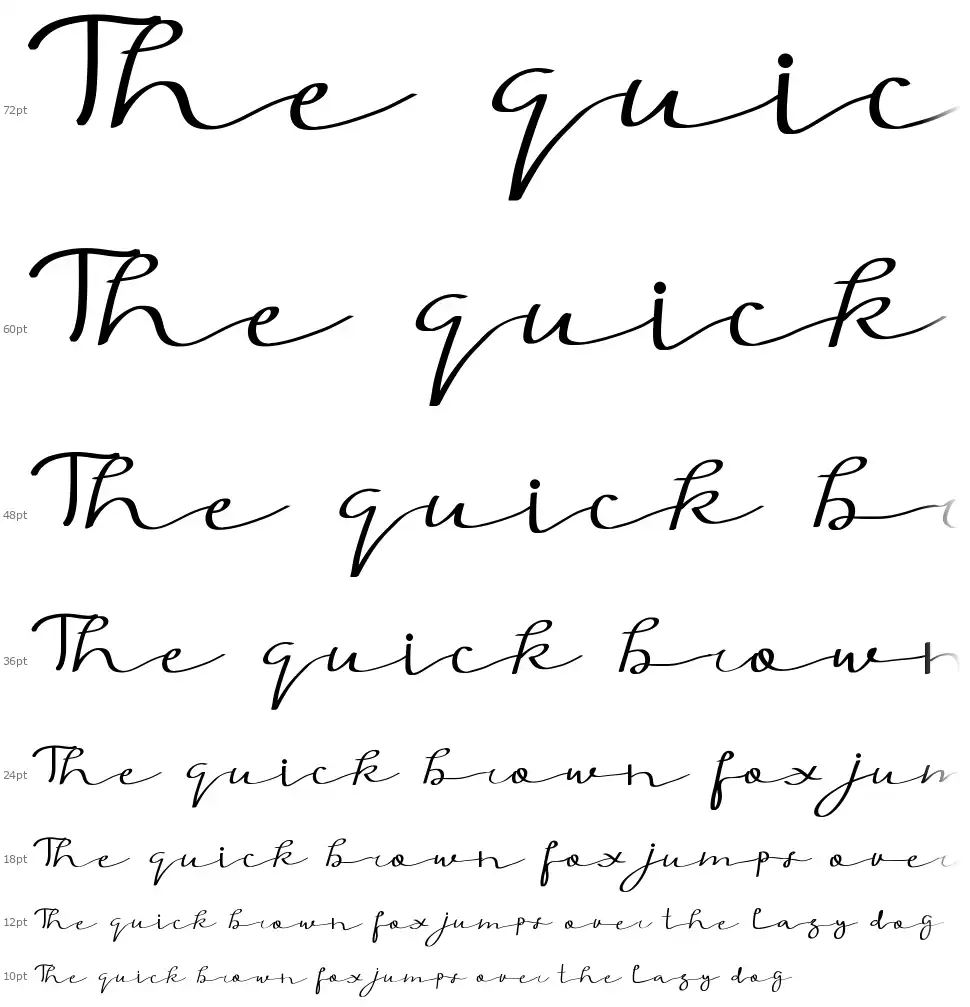 72pt The quic
60pt The quick
48pt The quick b
36pt The quick brown
24pt The quick brown fox jum
18pt The quick brown fox jumps over
12pt The quick brown fox jumps over the lazy dog
10pt The quick brown fox jumps over the lazy dog